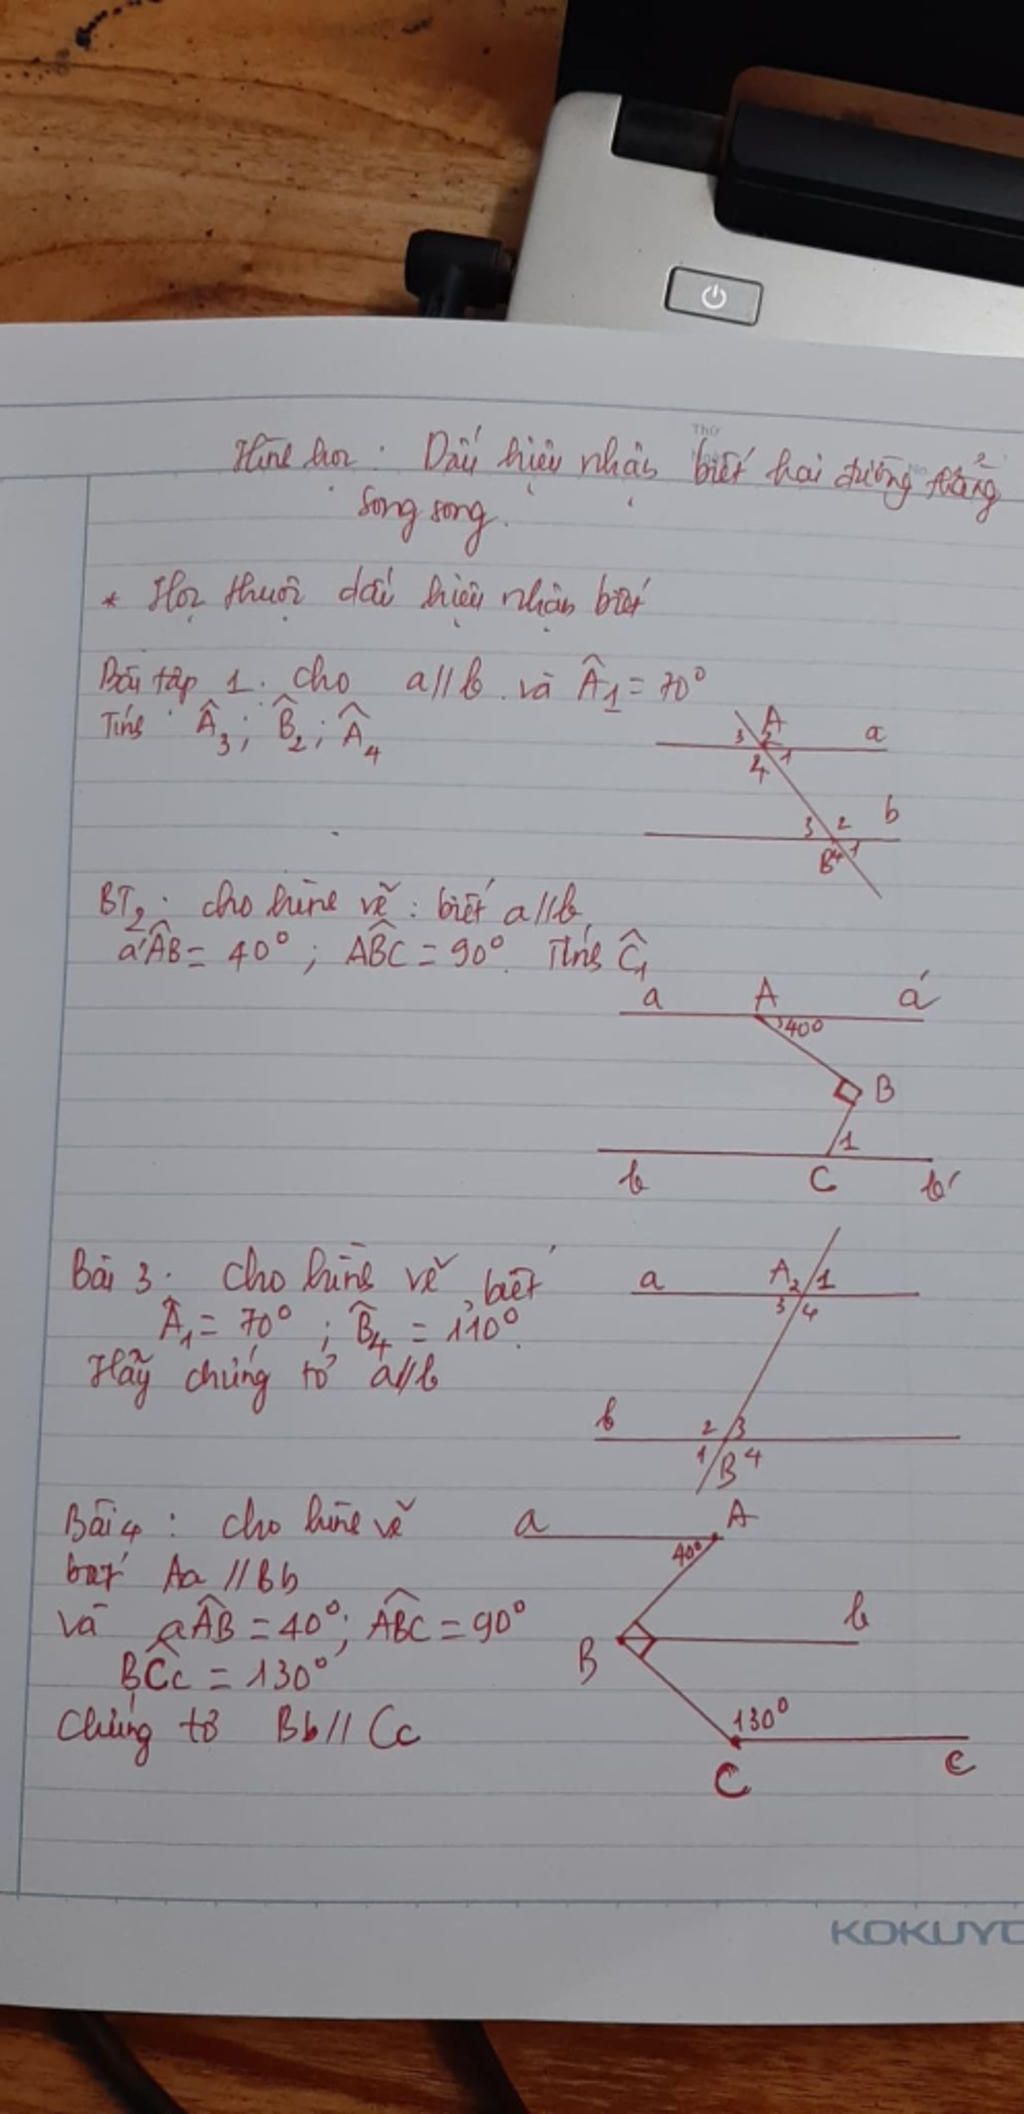 Thứ
Hình học : Dấu hiệu nhận biết hai đường thẳng
song song.
* Học thuộc dấu hiệu nhận biết
Bài tập 1. Cho a//b và Â1 = 70°
Tính Â3; B̂2; Â4
A
3 2 a
4 1
3 2 b
B4 1
BT2. Cho hình vẽ : biết a//b
a'ÂB = 40°; AB̂C = 90°. Tính Ĉ1
a A a'
40°
B
1
b C b'
Bài 3. Cho hình vẽ, biết
Â1 = 70°; B̂4 = 110°.
Hãy chứng tỏ a//b
a A2 1
3 4
b 2 3
1 B 4
Bài 4 : Cho hình vẽ
biết Aa // Bb
và aÂB = 40°; AB̂C = 90°
BĈc = 130°
Chứng tỏ Bb // Cc
a A
40°
B b
130°
C c
KOKUYO